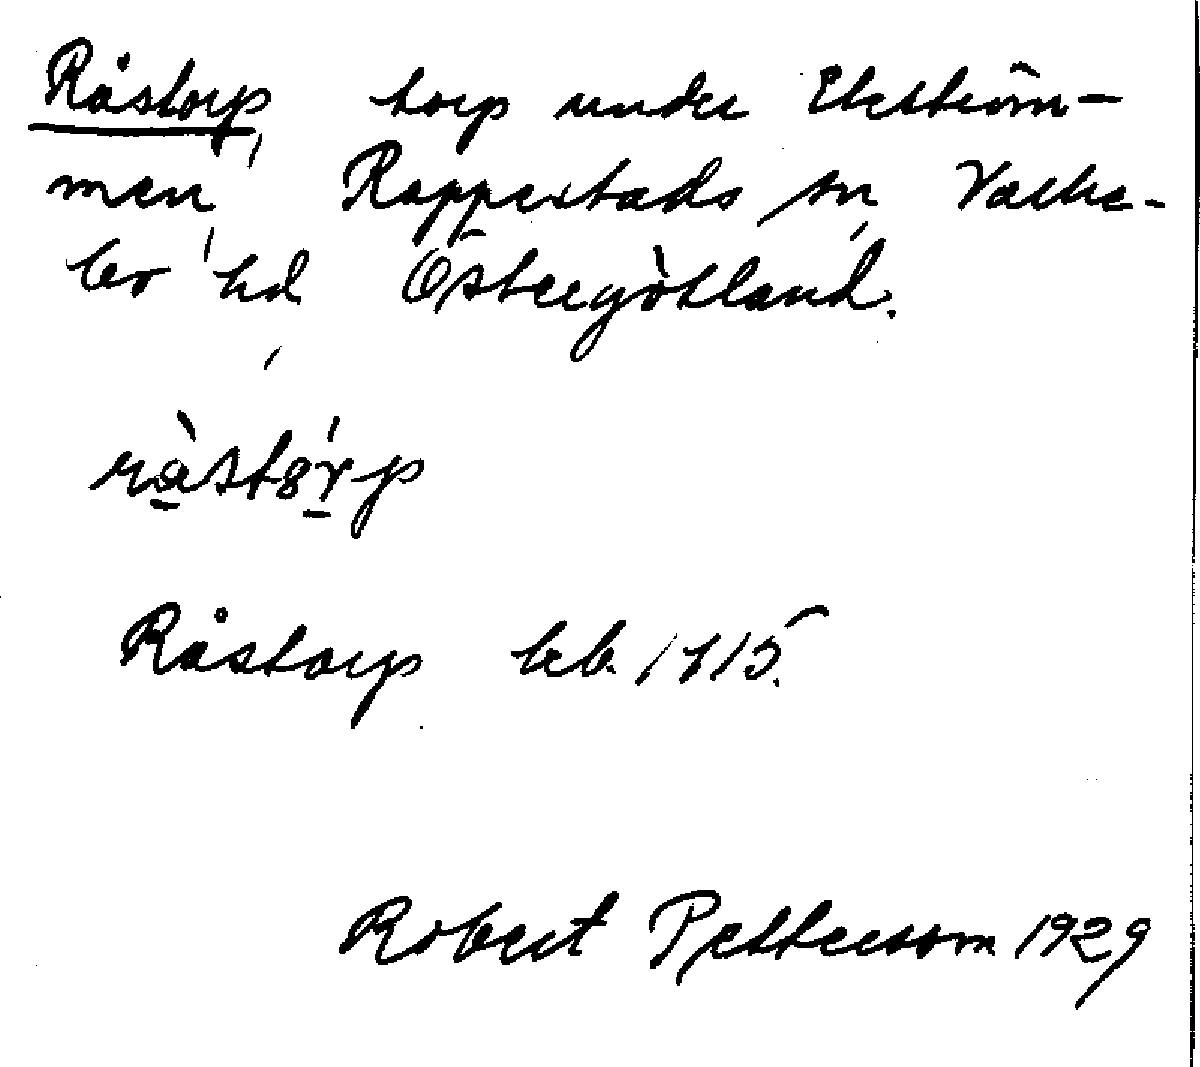 Råstorp, torp under Ekström-
men, Rappestads sn, Valke-
bo hd, Östergötland.
ràstó̱rp
Råstorp beb. 1715.
Robert Pettersson 1929